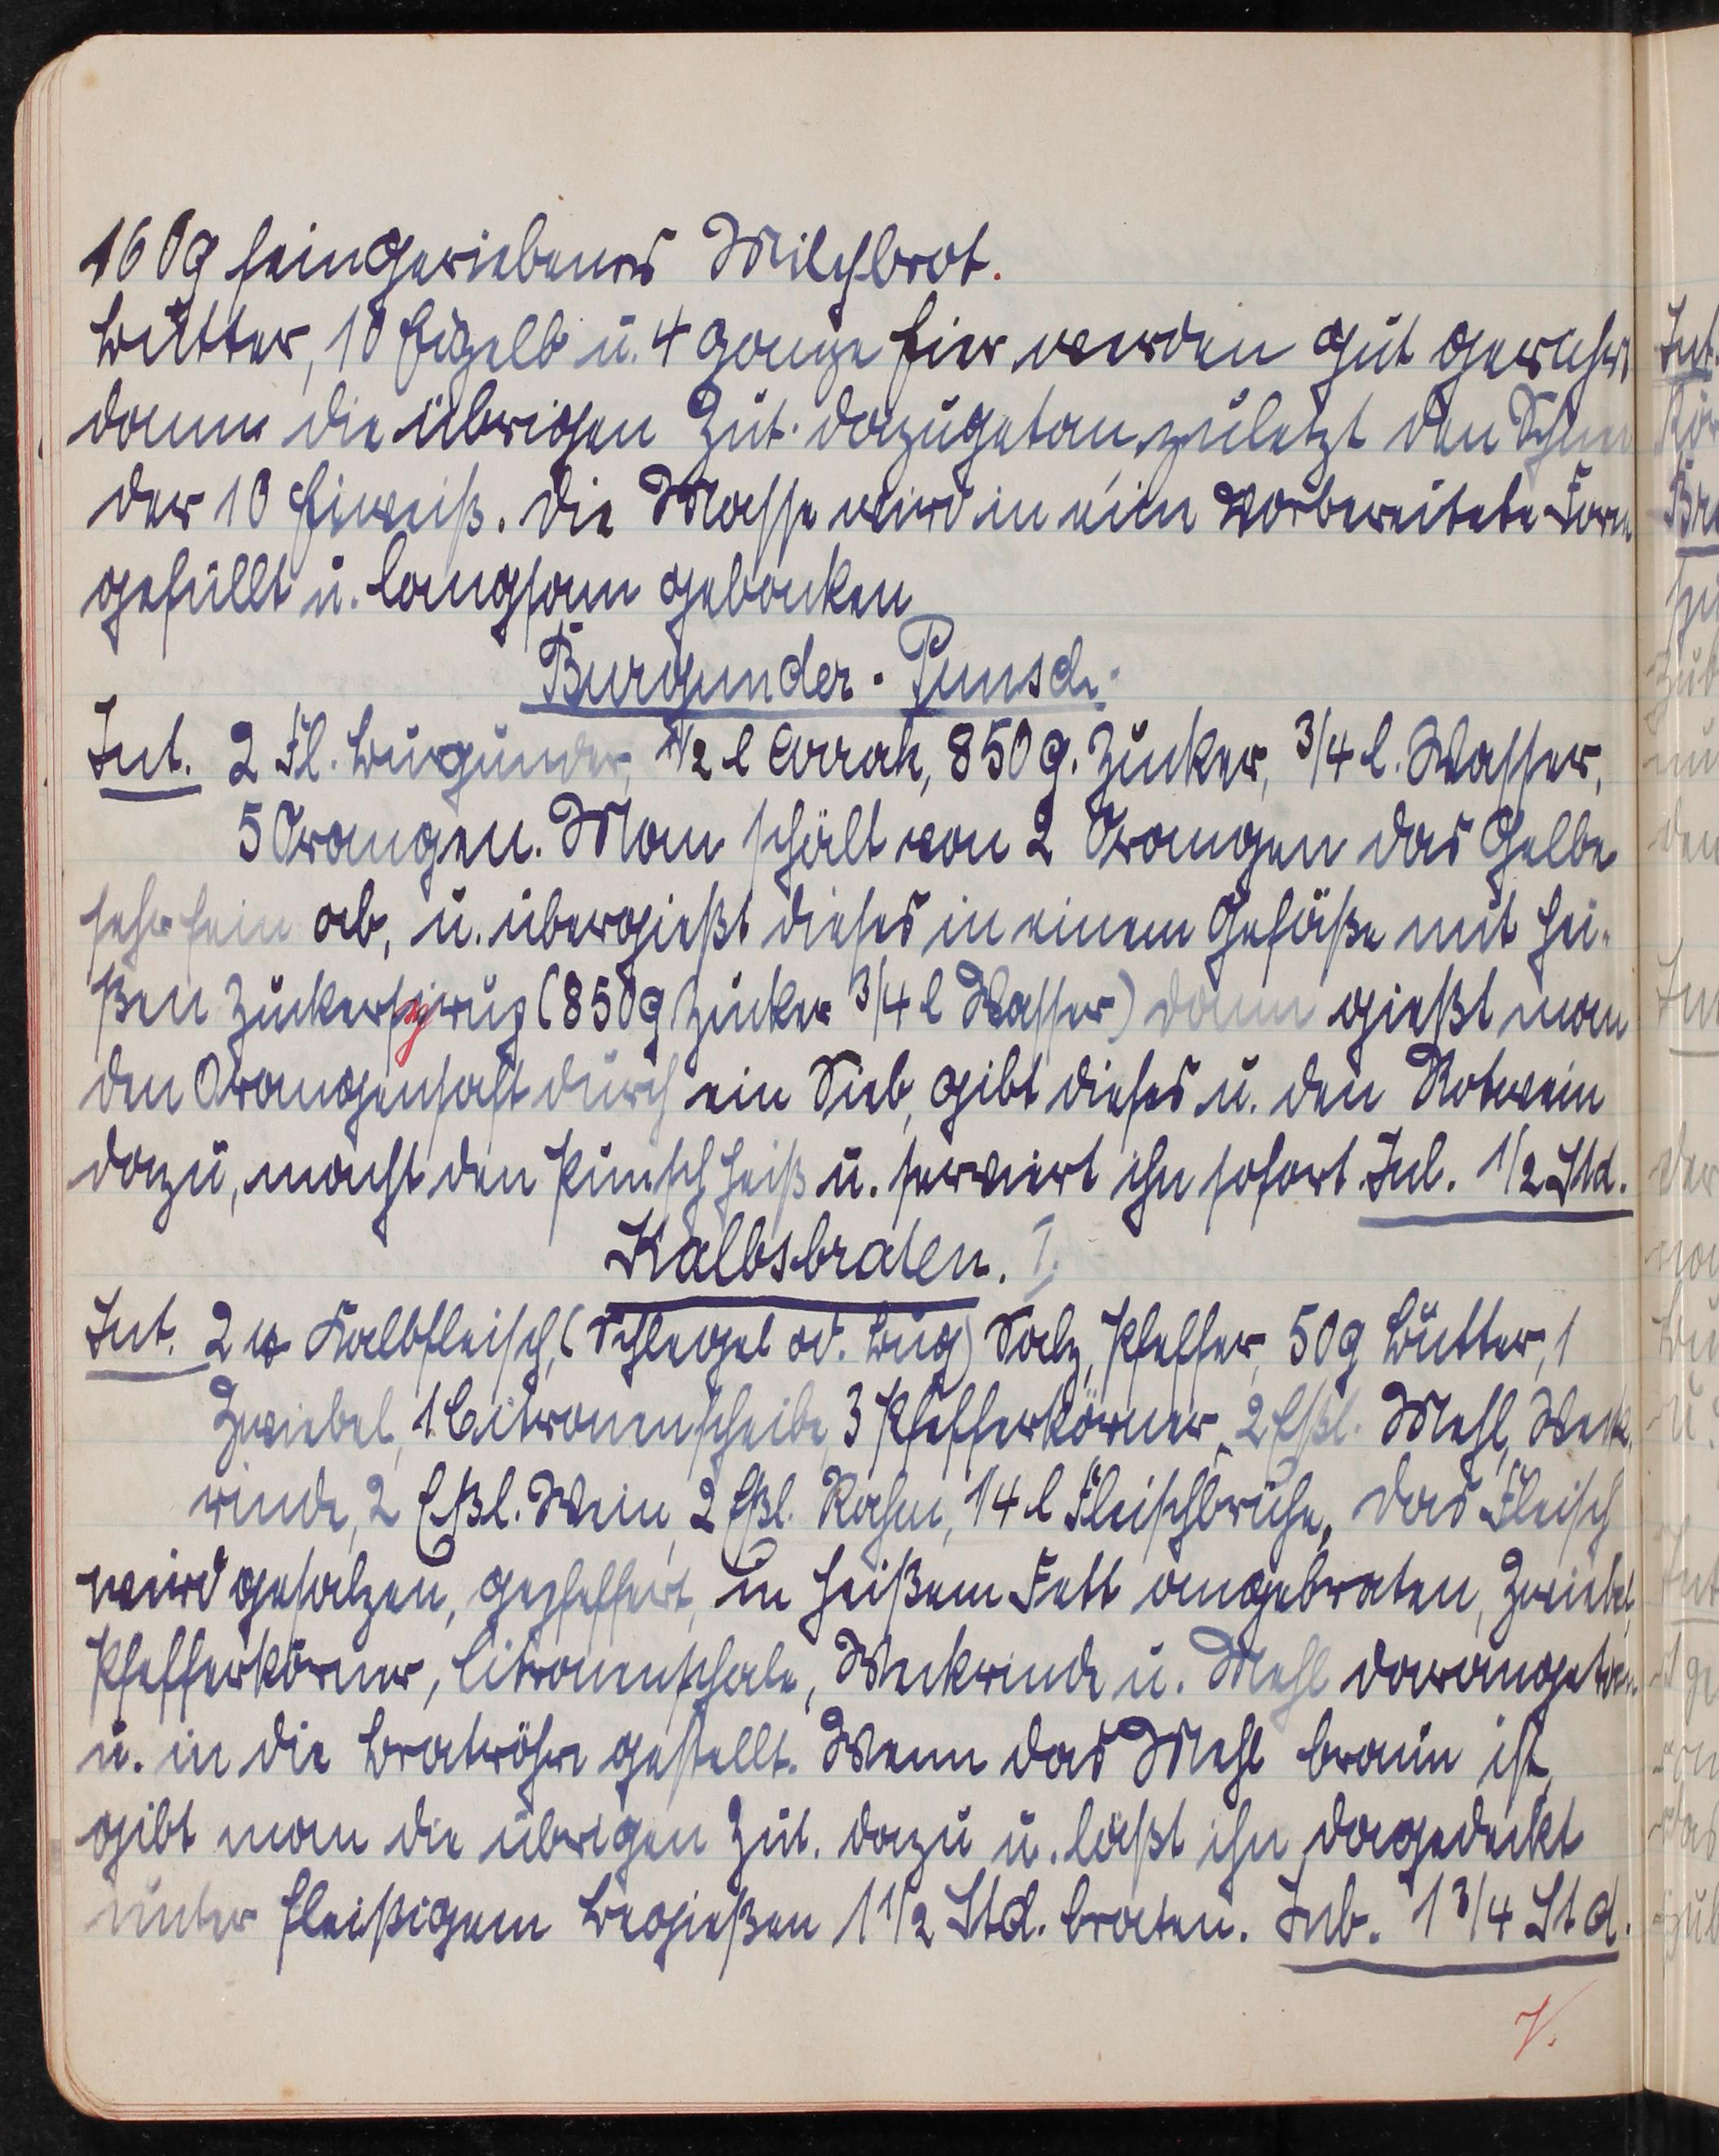 160g feingeriebenes Milchbrot.
Butter, 10 Eigelb u. 4 ganze Eier werden gut gerührt
dann die übrigen Zut. dazugetan, zuletzt den Schnee
der 10 Eiweiß. Die Masse wird in eine vorbereitete Form
gefüllt u. langsam gebacken
Burgunder-Punsch.
Zut. 2 Fl. Burgunder, 1/2 l Arrak, 850 g. Zucker, 3/4 l. Wasser,
5 Orangen. Man schält von 2 Orangen das Gelbe
sehr fein ab, u. übergießt dieses in einem Gefäße mit hei-
ßen Zuckersyrup (850g Zucker 3/4 l Wasser) dann gießt man
den Orangensaft durch ein Sieb, gibt dieses u. den Rotwein
dazu, macht den Punsch heiß u. serviert ihn sofort. Zub. 1/2 Std.
Kalbsbraten. I.
Zut. 2 ℔ Kalbfleisch, (Schlegel od. Bug) Salz, Pfeffer, 50g Butter, 1
Zwiebel, 1 Citronenscheibe, 3 Pfefferkörner, 2 Eßl. Mehl, Weck
rinde, 2 Eßl. Wein, 2 Eßl. Rahm, 14 l Fleischbrühe, Das Fleisch
wird gesalzen, gepfeffert, in heißem Fett angebraten, Zwiebel,
Pfefferkörner, Citronenschale, Weckrinde u. Mehl darangetan.
u. in die Bratröhre gestellt. Wenn das Mehl braun ist,
gibt man die übrigen Zut. dazu u. läßt ihn zugedeckt
unter fleißigem Begießen 1 1/2 Std. braten. Zub. 1 3/4 Std.
V.